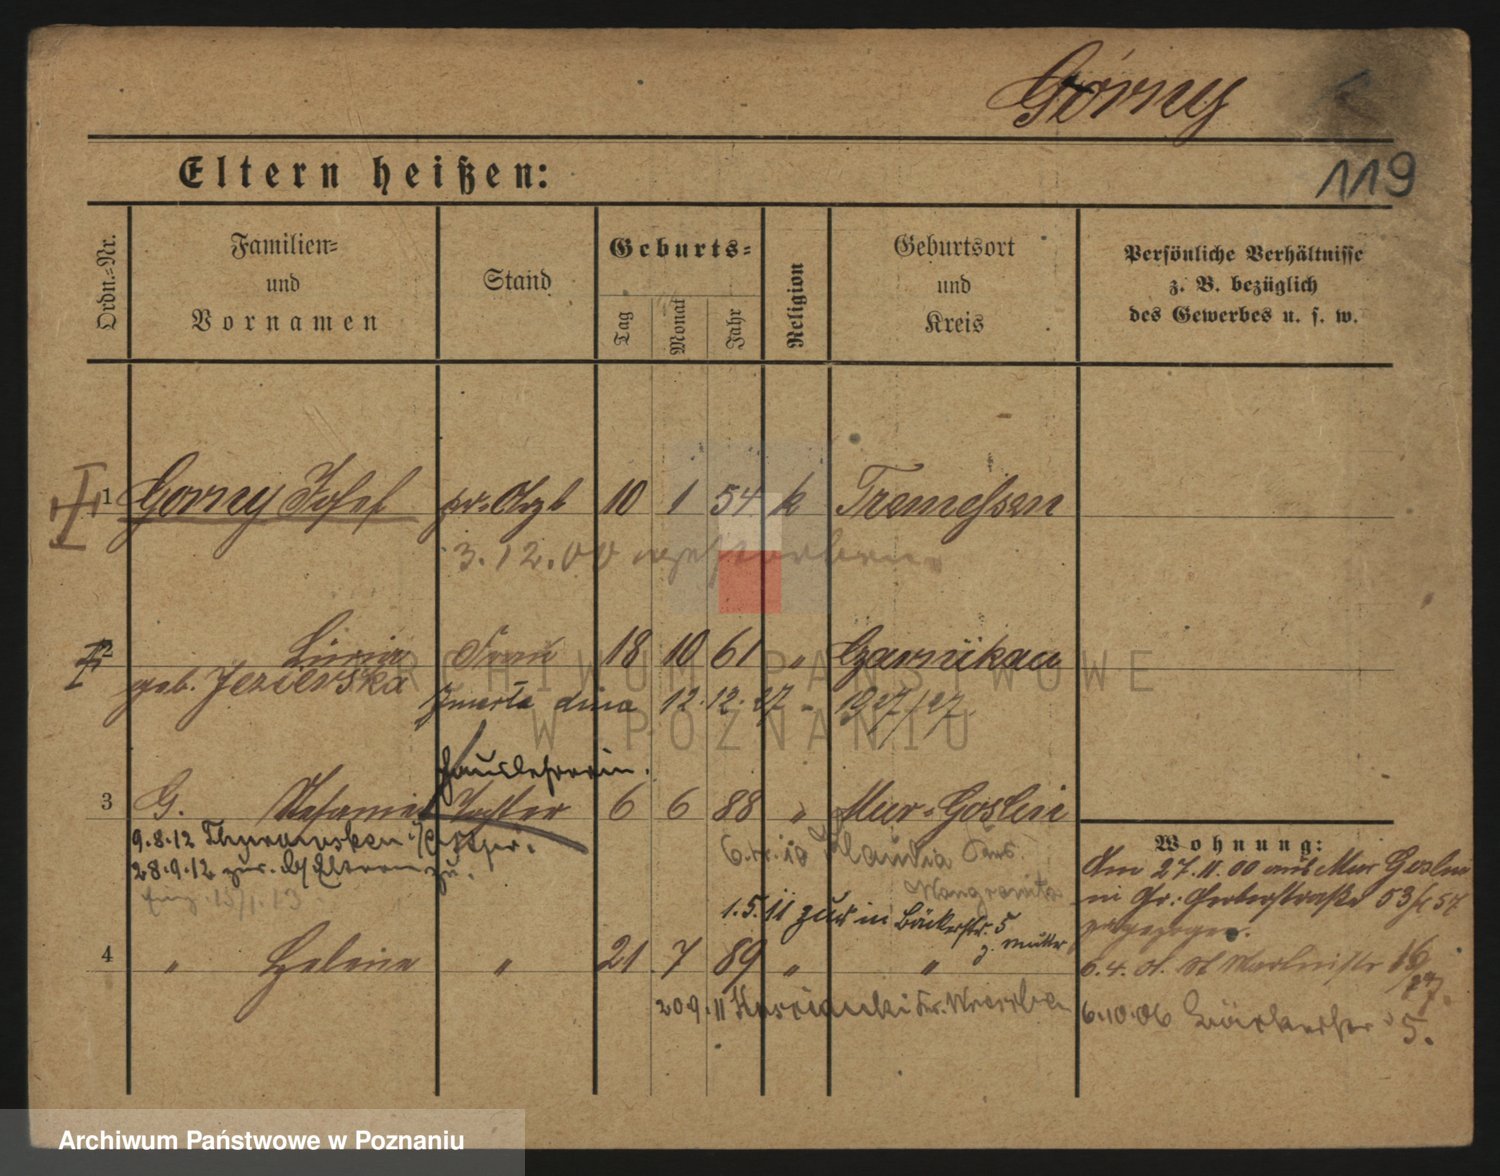 Górny
119
Eltern heißen:
Ordn.-Nr.
Familien-
und
Vornamen
Stand
Geburts-
Tag
Monat
Jahr
Religion
Geburtsort
und
Kreis
Persönliche Verhältnisse
z. B. bezüglich
des Gewerbes u. s. w.
1 Gorny Josef pr. Arzt 10 1 54 k Tremessen
3.12.00 gestorben.
2 Frau 18 10 61 " Czarnikau
geb. Jezierska
Zmarła dnia 12.12.27 - 1927/27
Hauslehrerin.
3 G. Stefania Tochter 6 6 88 " Mur-Goslin
9.8.12
28.9.12 zur. Eltern zu.
6. 10 Klaudia Krs.
Wongrowitz
1.5.11 zur in Bäckerstr. 5
z. Mutter
4 " Helena " 21 7 89 " "
209.11 Kr. Wreschen
Wohnung:
Am 27.11.00 aus Mur Goslin
in Gr. Gerberstraße 53 57
zugezogen.
6.4.01. St Martinstr 16/17.
6.10.06 Bäckerstr 5.
ARCHIWUM PAŃSTWOWE
W POZNANIU
Archiwum Państwowe w Poznaniu